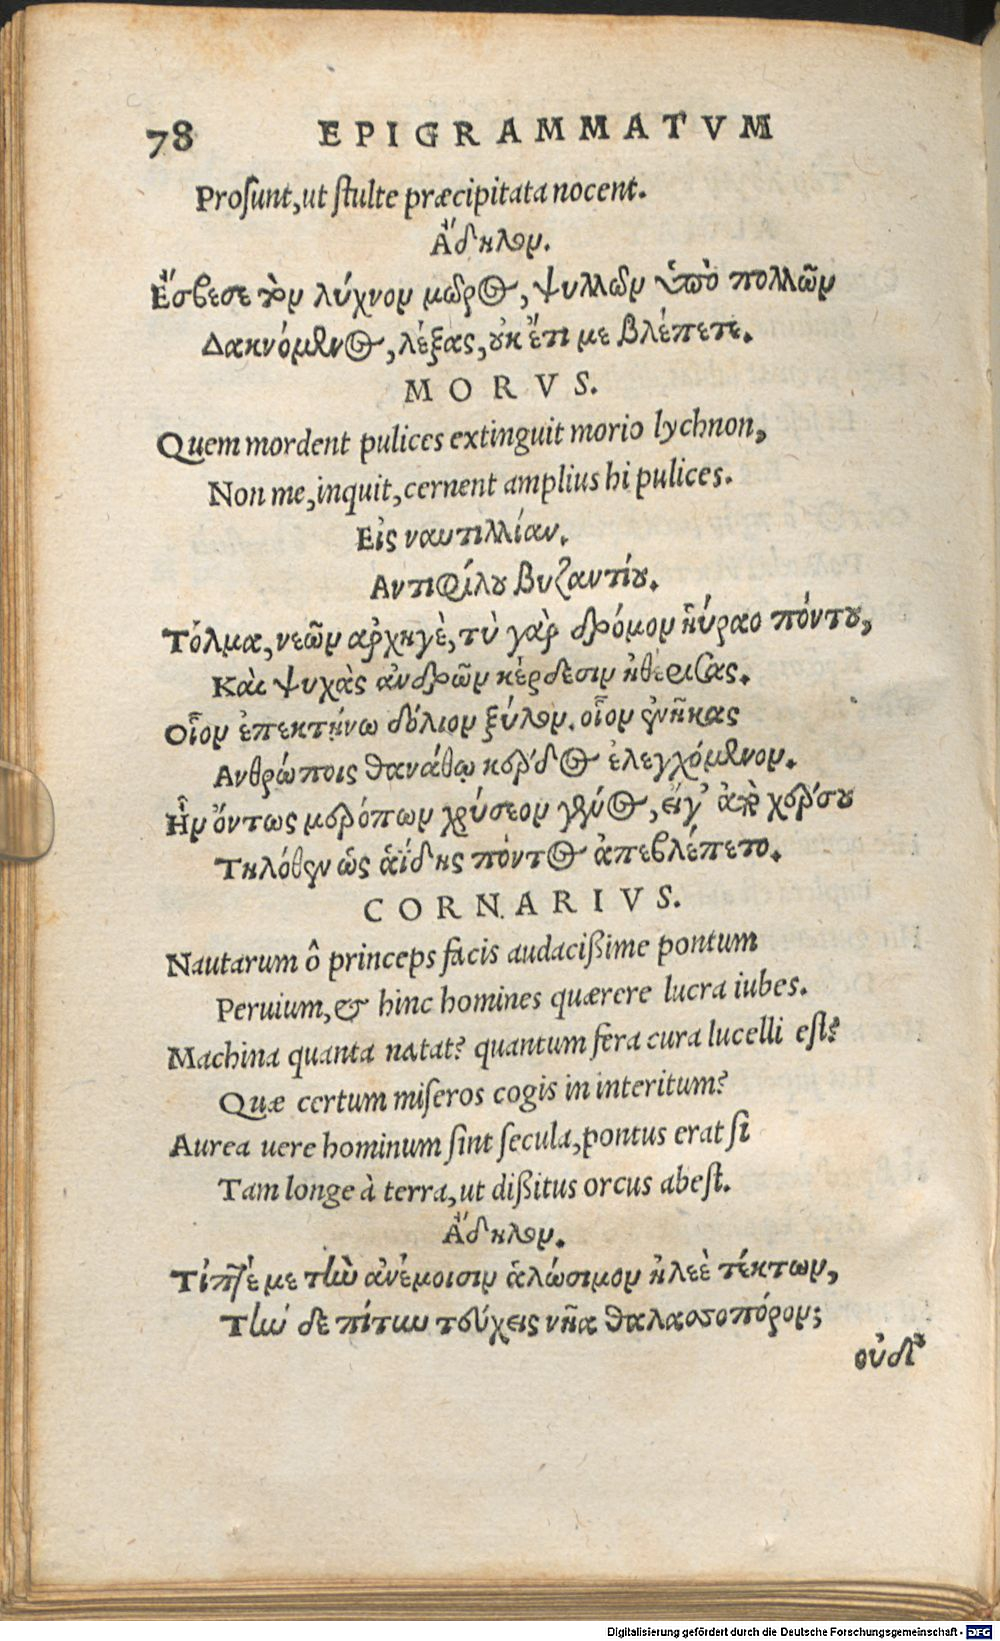 78 EPIGRAMMATVM
Prosunt, ut stulte præcipitata nocent.
Ἄδηλον.
Ἔσβεσε τὸν λύχνον μωρὸς, ψυλλῶν ὑπὸ πολλῶν
Δακνόμενος, λέξας, οὐκ ἔτι με βλέπετε.
MORVS.
Quem mordent pulices extinguit morio lychnon,
Non me, inquit, cernent amplius hi pulices.
Εἰς ναυτιλλίαν.
Αντιφίλου βυζαντίου.
Τόλμα, νεῶν αρχηγὲ, τὺ γὰρ δρόμον ηὕραο πόντου,
Καὶ ψυχὰς ἀνδρῶν κέρδεσιν ἠθέρισας.
Οἷον ἐπεκτήνω δόλιον ξύλον. οἷον ἐνῆκας
Ανθρώποις θανάτῳ κέρδος ἐλεγχόμενον.
Ἦν ὄντως μερόπων χρύσεον γένος, εἴγ' ἀπὸ χέρσου
Τηλόθεν ὡς ἀΐδης πόντος ἀπεβλέπετο.
CORNARIVS.
Nautarum ô princeps facis audacißime pontum
Peruium, & hinc homines quærere lucra iubes.
Machina quanta natat? quantum fera cura lucelli est?
Quæ certum miseros cogis in interitum?
Aurea uere hominum sint secula, pontus erat si
Tam longe à terra, ut dißitus orcus abest.
Ἄδηλον.
Τίπτέ με τὴν ἀνέμοισιν ἁλώσιμον ἠλεὲ τέκτων,
Τήν δε πίτυν τεύχεις νῆα θαλασσοπόρον;
οὐδ'
Digitalisierung gefördert durch die Deutsche Forschungsgemeinschaft - DFG